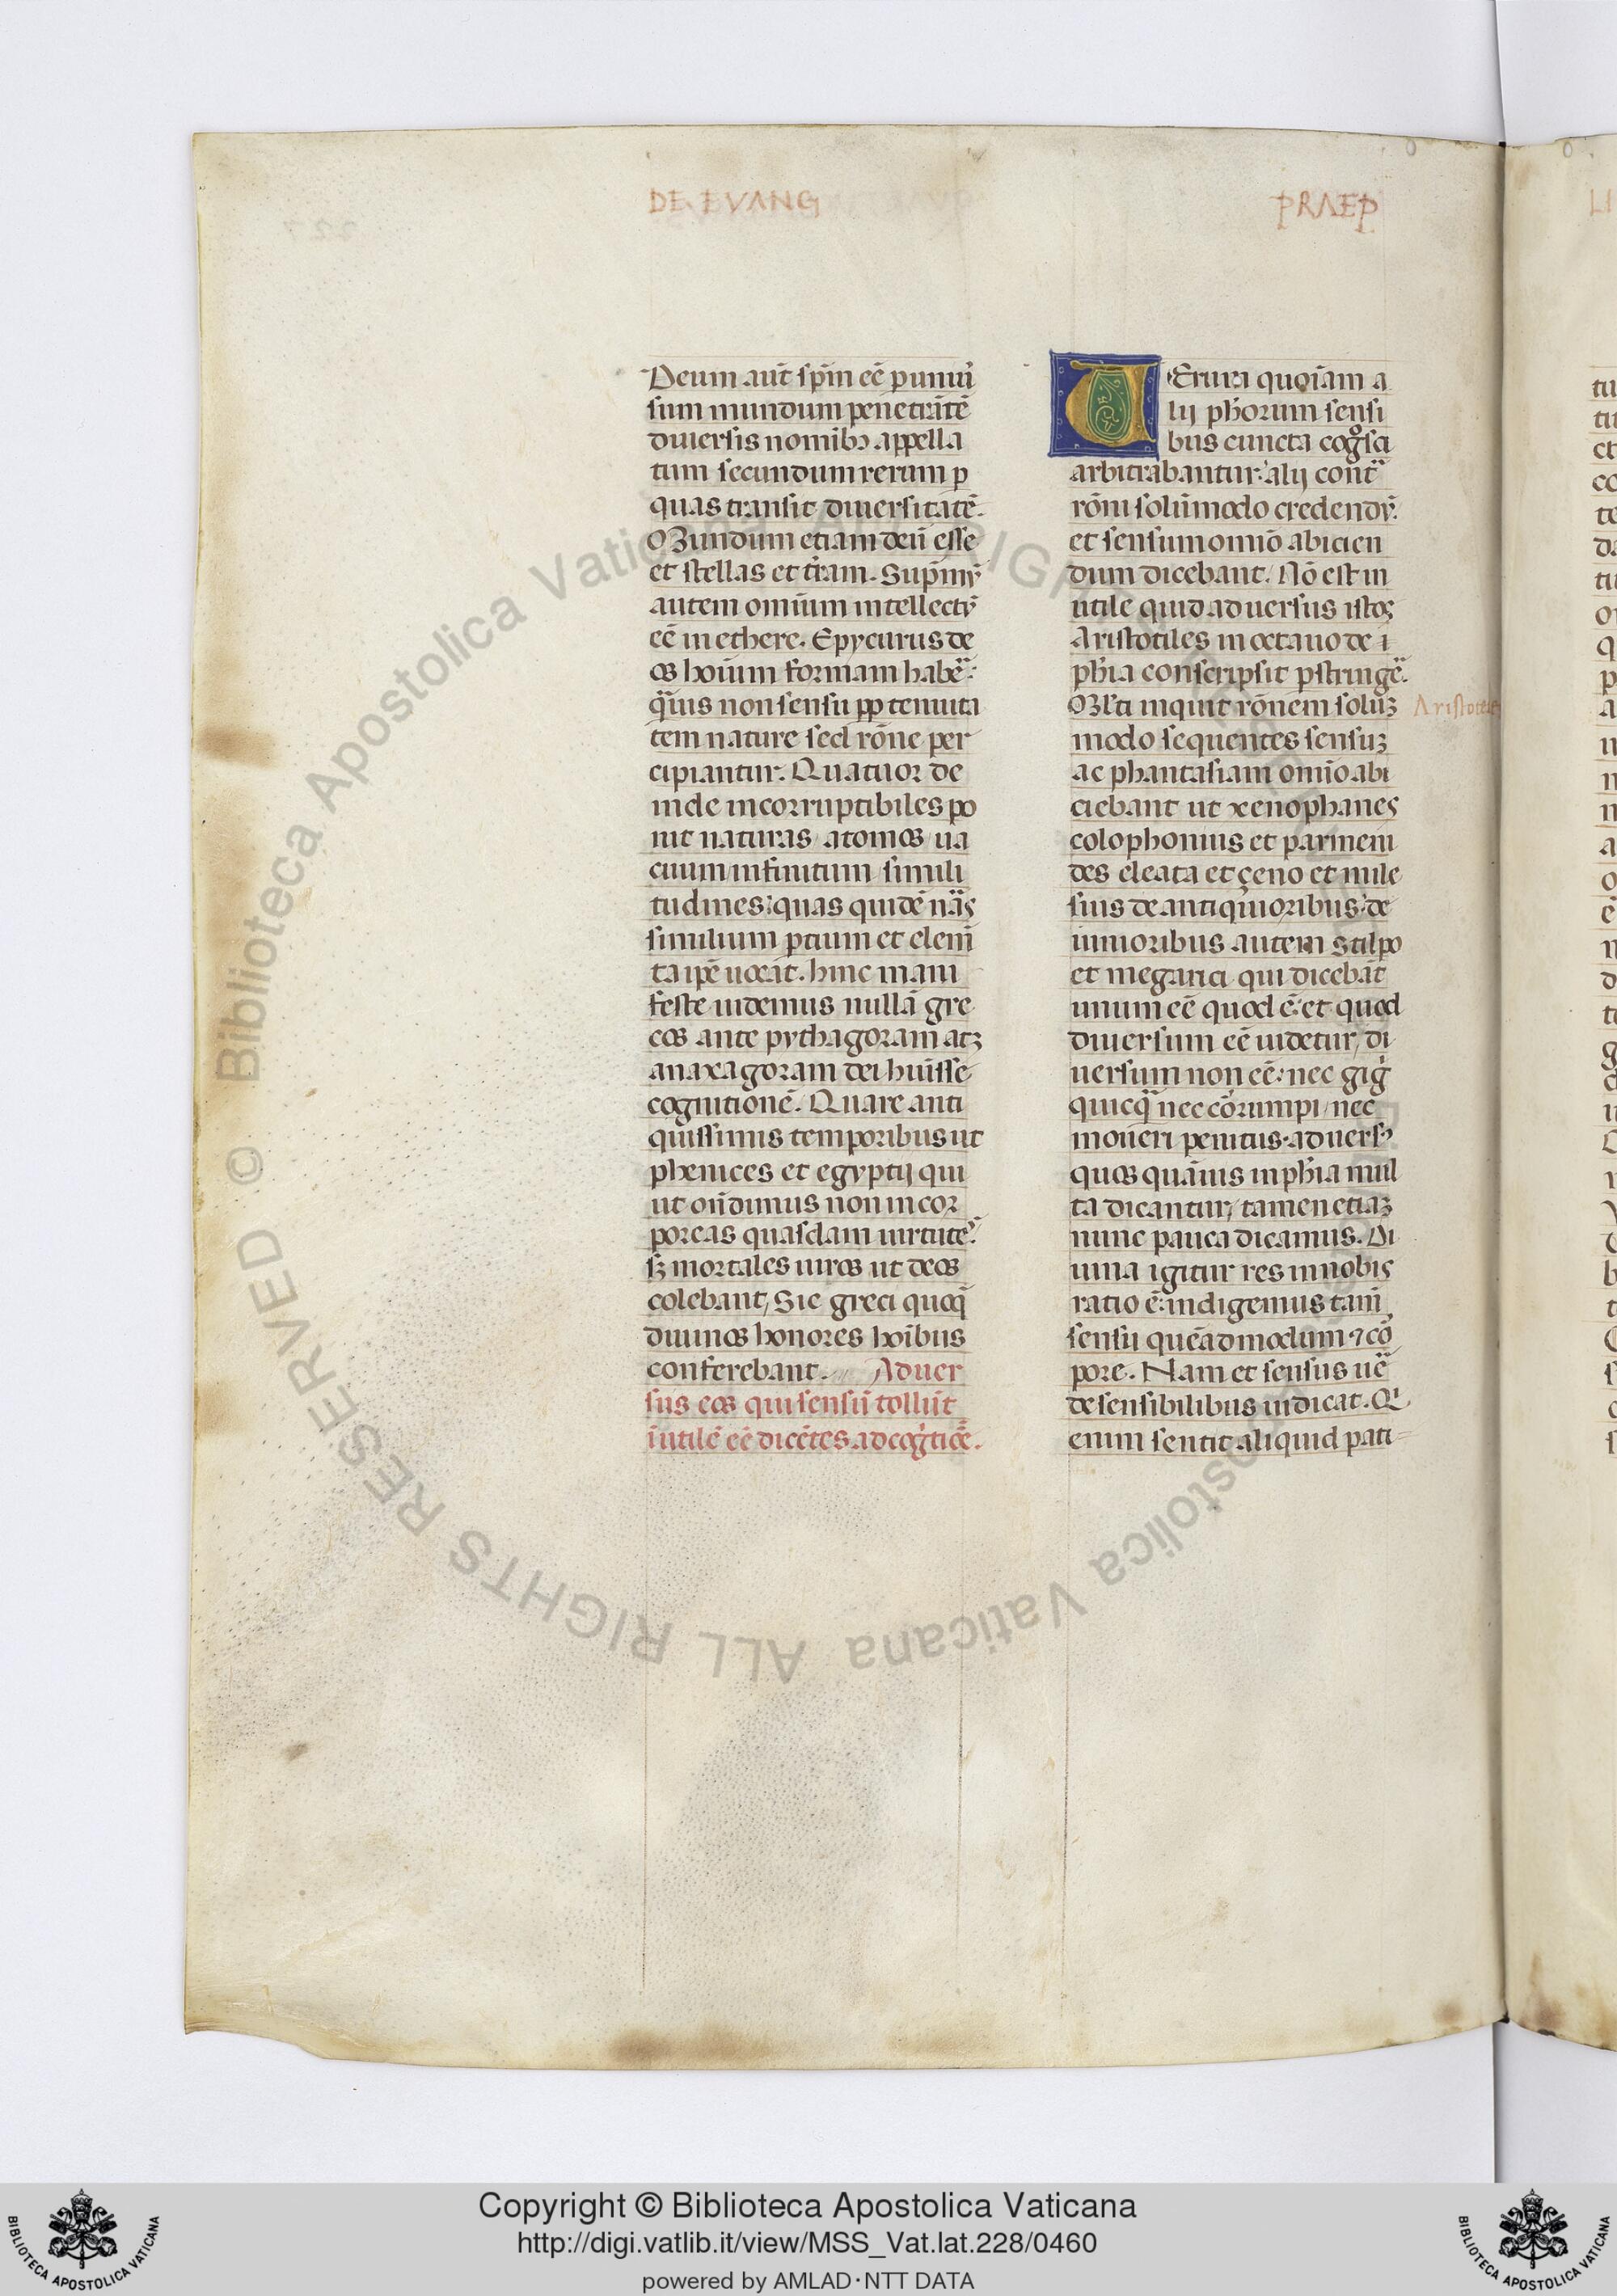 DE. EVANG
PRAEP
Deum aūt sp̄m eē p uniu̾
sum mundum penetrātē
diuersis nomibꝰ appella
tum secundum rerum ꝑ
quas transit diuersitatē.
Mundum etiam deū esse
et stellas et t̄ram. Sup̄mū
autem omīum intellectū
eē in ethere. Epycurus de
os hoīum formam habē̄:
q̄uis non sensu ꝓp tenuita
tem nature sed rōne per
cipiantur. Quatuor de
inde incorruptibiles po
nit naturas atomos / ua
cuum / infinitum / simili
tudines: quas quidē nāˢ
similium ꝑtium et elem̄
ta ip̄e uocat. hinc mani
feste uidemus nullā gre
cos ante pythagoram atꝫ
anaxagoram dei huīsse
cognitionē. Quare anti
quissimis temporibus ut
phenices et egyptij qui
ut on̄dimus non incor
poreas quasdam uirtutē:
sꝫ mortales uiros ut deos
colebant, Sic greci quoqꝫ
diuinos honores hoībus
conferebant. Aduer
sus eos qui sensū tollūt
īutilē eē dicētes ad cog̾tiōē̄.
VErum quoīam a
lij ph̄orum sensi
bus cuncta cog̊sci
arbitrabantur: alij cont̄
rōni solūmodo credendū:
et sensum omīo abicien
dum dicebant. Nō est in
utile quid aduersus istos
Aristotiles in octauo de
ph̄ia conscripsit ꝑstringē̄.
Ml̄ti inquit rōnem soluꝫ
modo sequentes sensuꝫ
ac phantasiam omīo abi
ciebant ut xenophanes
colophonius et parmeni
des eleata et çeno et mile
sius de antiq̾oribus: de
iunioribus autem stilpo
et megarici qui dicebāt
unum eē quod ē: et quod
diuersum eē uidetur, di
uersum non eē: nec gig̾
quicq̄ nec cōrumpi / nec
moueri penitus. aduersꝰ
quos quāuis in ph̄ia mul
ta dicantur, tamen etiaꝫ
nunc pauca dicamus. Di
uina igitur res in nobis
ratio ē: indigemus tam̄
sensu quēadmodum ⁊ cō
pore. Nam et sensus uē̄
de sensibilibus iudicat. Q̾
enim sentit aliquid pati
Aristoteles
Copyright © Biblioteca Apostolica Vaticana
http://digi.vatlib.it/view/MSS_Vat.lat.228/0460
powered by AMLAD · NTT DATA
BIBLIOTECA APOSTOLICA VATICANA
BIBLIOTECA APOSTOLICA VATICANA
© Biblioteca Apostolica Vaticana ALL RIGHTS RESERVED
© Biblioteca Apostolica Vaticana ALL RIGHTS RESERVED